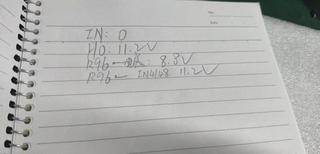 IN: 0
HO: 11.2V
R96 — : 8.3V
R96 — IN4148 11.2V